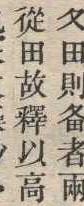 夂田則备者兩
從田故釋以高